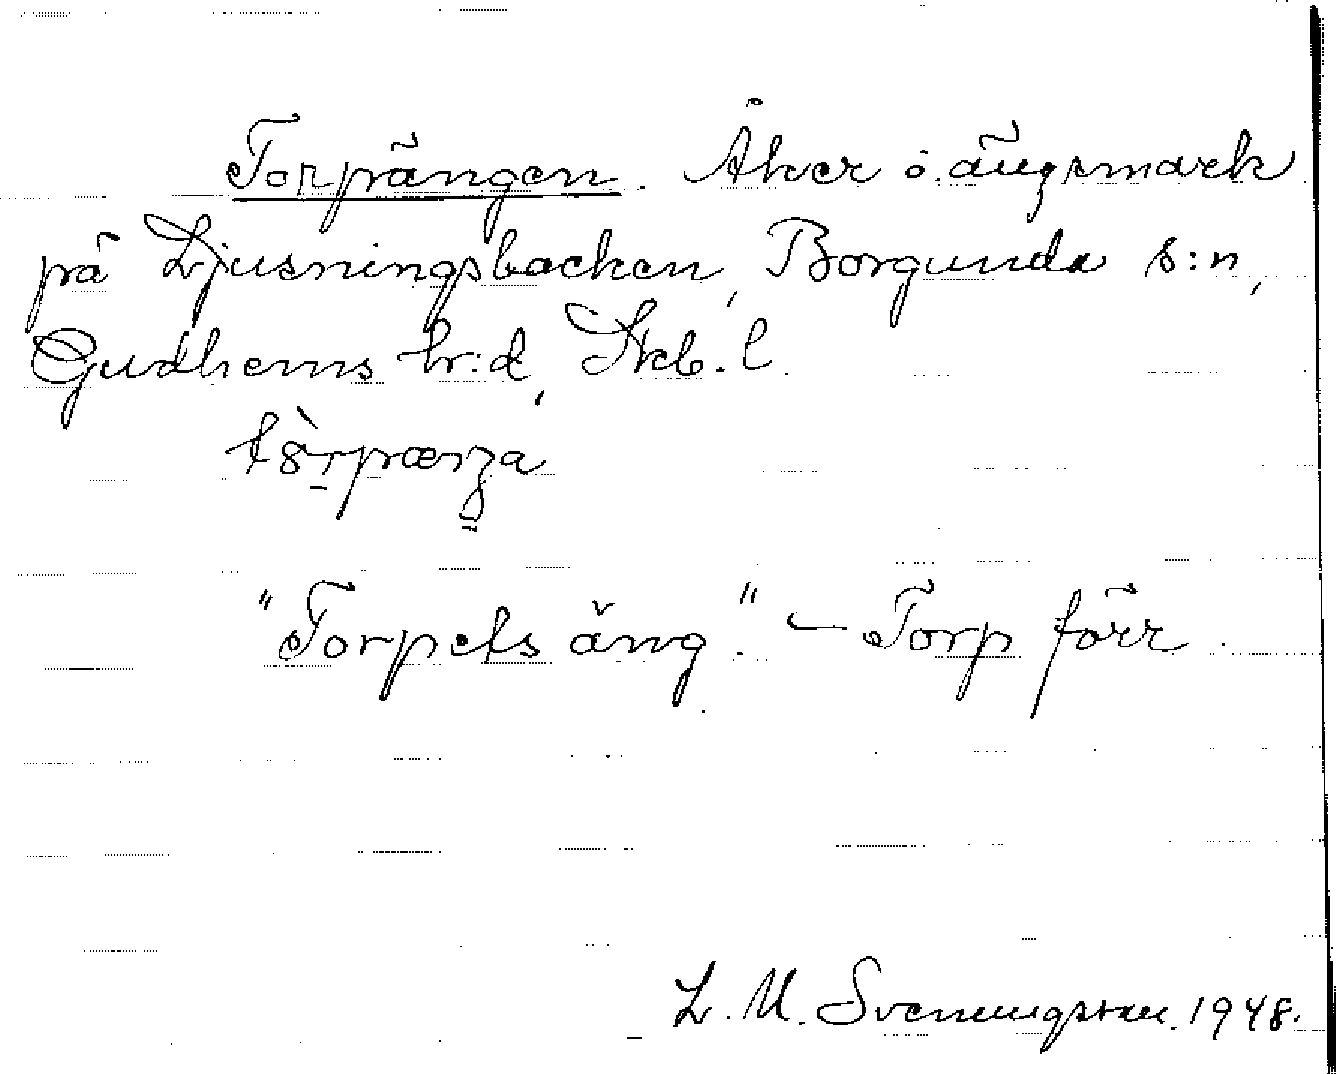 Torpängen. Åker o. ängsmark
på Ljusningsbacken, Borgunda s:n,
Gudhems hr:d, Skb. l.
"Torpets äng." – Torp förr.
L. M. Svenungsson. 1948.